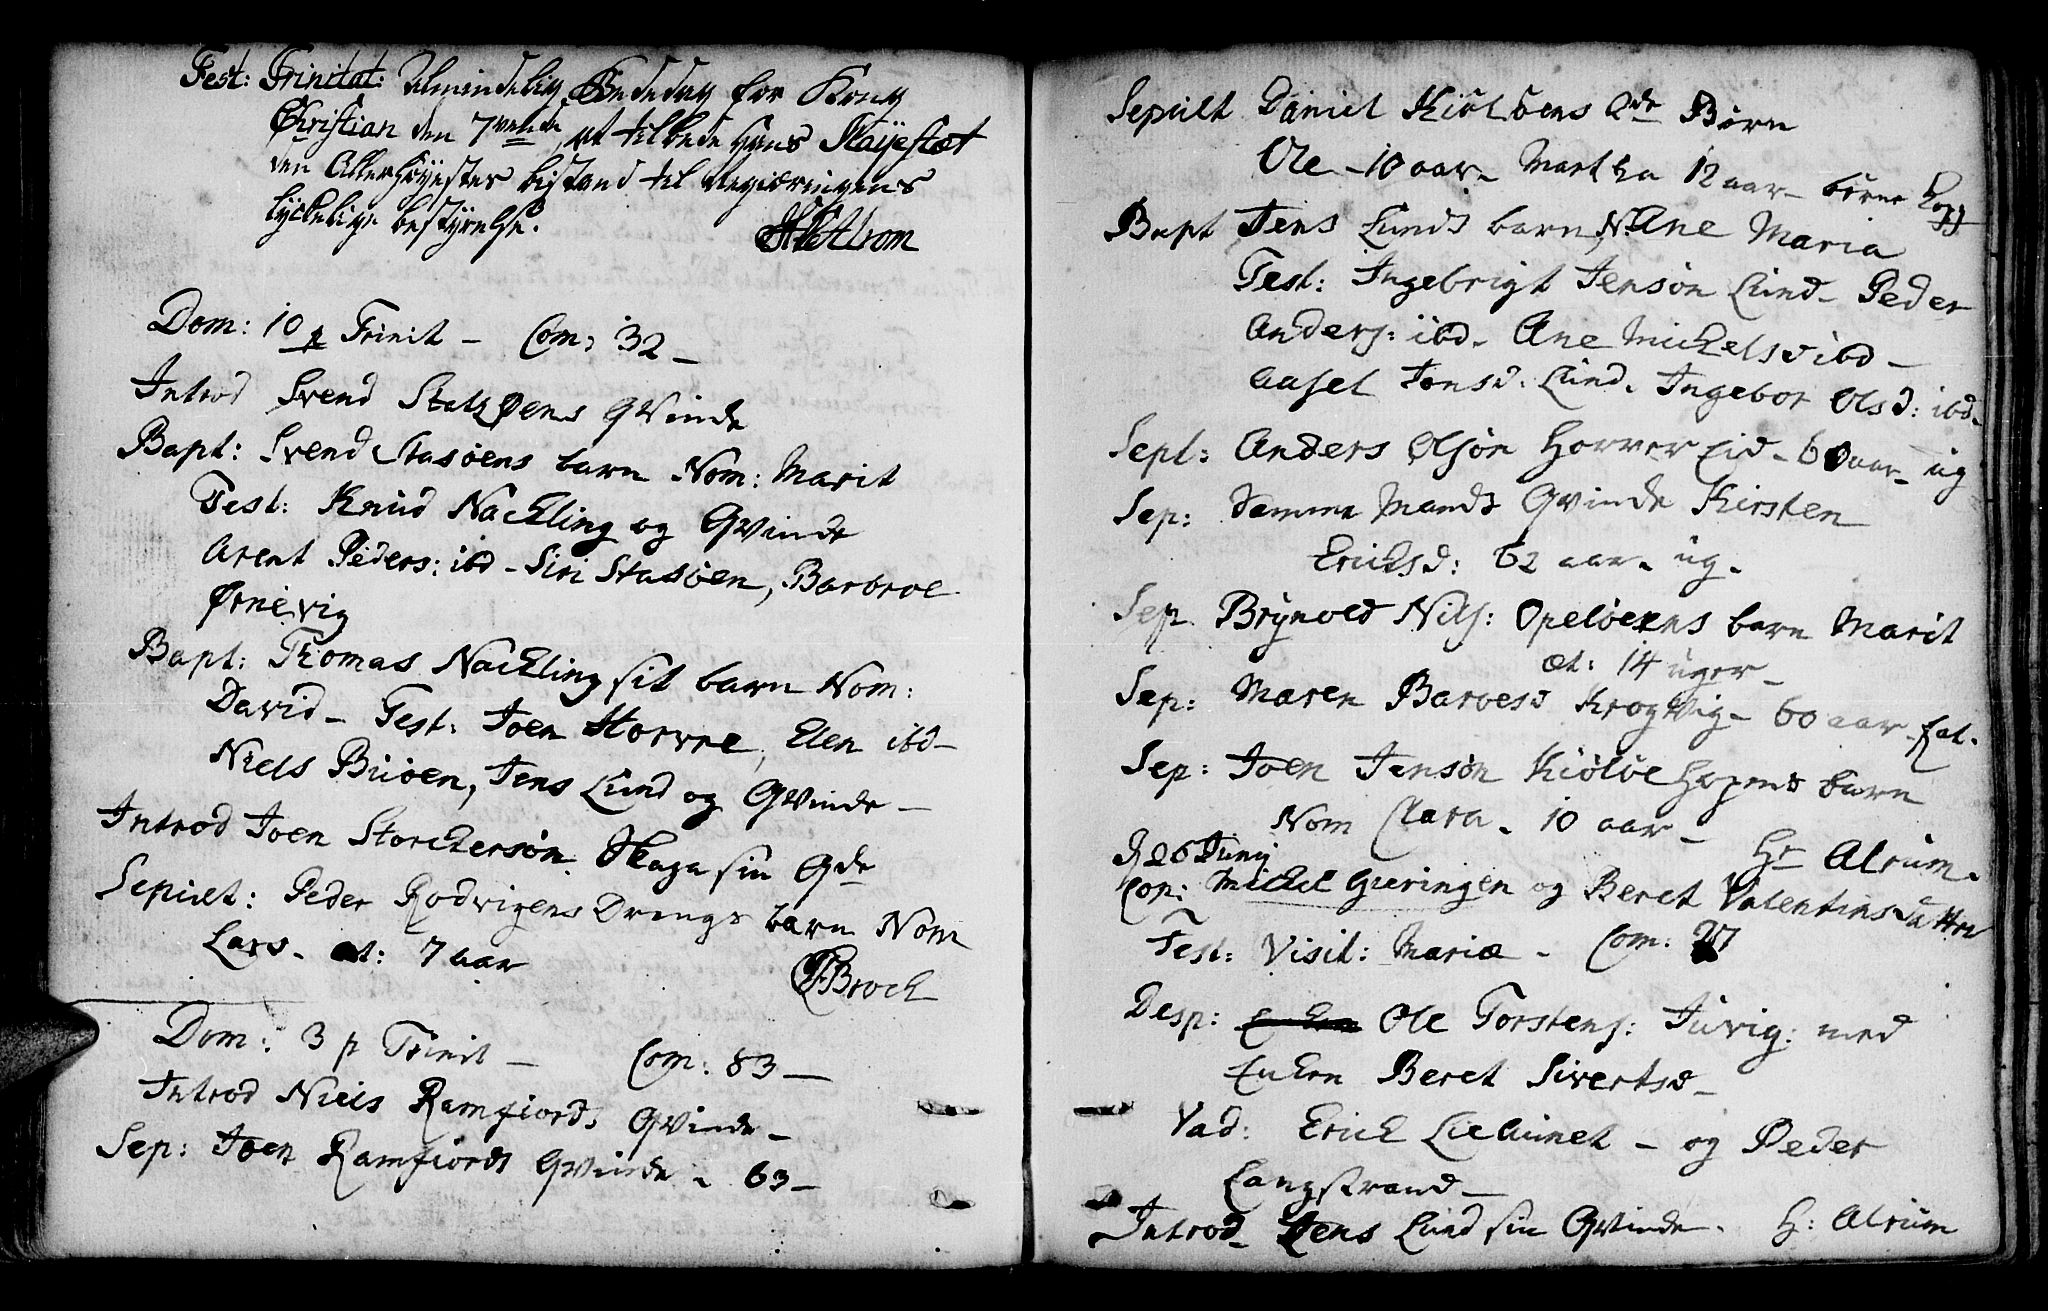 Fest: Trinitat: Almindelig Bededag for Kong
Christian den 7vende, at tilbede hans Mayestæt
den Allerhöyestes bistand til Regieringens
lyckelige bestyrelse.
Alrom
Dom: 10 p Trinit - Com: 32 -
Introd Svend Qvinde
Bapt: Svend Stasöens barn Nom: Marit
Test: Knud Nackling og Qvinde
Arent Peders: ibd - Siri Stasöen, Barbroe
Ørnevig
Bapt: Thomas Nackling sit barn Nom:
David - Test: Joen Storvre, Elen ibd -
Niels Buöen, Jens Lund og Qvinde -
Introd Joen Storckersön Skaga sin Qde
Sepult: Peder Rodvigens Drengs barn Nom
Lars - æt: 7 aar
Brock
Dom: 3 p Trinit - Com: 83 -
Introd Niels Ramfiords Qvinde -
Sep: Joen Ramfiords Qvinde - 63 -
Sepult Daniel Kiölsöens 2de Börn
Ole - 10 aar - Martha 12 aar - börne
Bapt Jens Lunds barn, N. Ane Maria
Test: Ingebrigt Jensön Lund - Peder
Anders: ibd - Ane Mickelsd ibd -
Aasel Jonsd: Lund. Ingebor Olsd: ibd -
Sepl: Anders Olsön Horverlid - 60 aar - ug
Sep: Samme Mands Qvinde Kirsten
Ericksd: 62 aar - ug -
Sep Brynold Nils: Opelöeens barn Marit
æt: 14 uger -
Sep: Maren Baroesd Krogvig - 60 aar - fat.
Sep: Joen Jensön Kiölöe barn
Nom Clara - 10 aar -
Hr Alrum.
d 26 Junij
Cop: Mickel Græringen og Beret Valentinsd
Fest: Visit: Mariæ - Com: 27
Desp: Ole Torstens: Juvig: med
Enken Beret Sivertsd -
Vad: Erick Lieliunet - og Peder
Langstrand -
Introd - Jens Lund sin Qvinde - H: Alrum